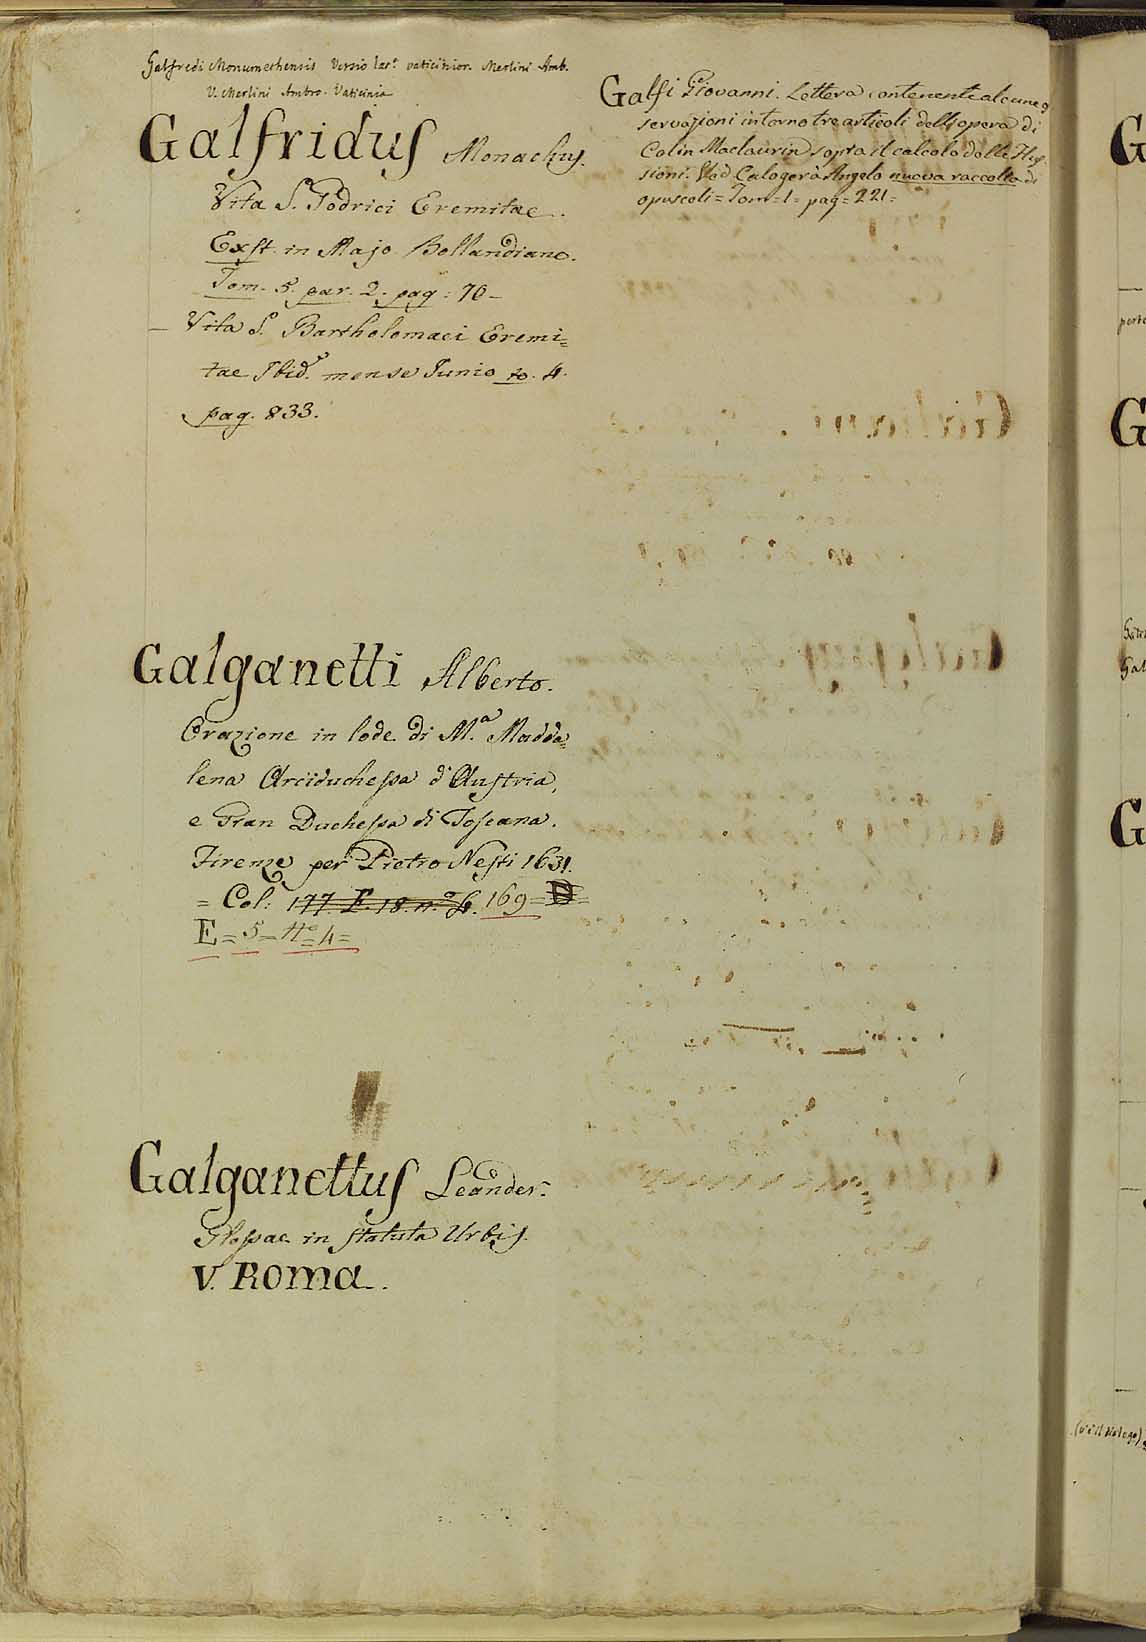 Galfredi Monumethensis Versio lat.ᵃ vaticinior. Merlini Amb.
V. Merlini Ambro. Vaticinia
Galfridus Monachus.
Vita S. Godrici Eremitae.
Exst. in Majo Bollandiano.
Tom. 5. par. 2. pag: 70-
— Vita S. Bartholomaei Eremi=
tae Ibid. mense Junio to. 4.
pag. 833.
Galganetti Alberto.
Orazione in lode di M.ᵃ Madda=
lena Arciduchessa d'Austria,
e Gran Duchessa di Toscana.
Firenze per Pietro Nesti 1631.
= Col: 177 F. 18. n.º 4. 169= D=
E= 5= Nº= 4=
Galganettus Leander.
Glossae in statuta Urbis.
V. Roma.
Galfi Giovanni. Lettera contenente alcune os
servazioni intorno tre articoli dell'opera di
Colin Maclaurin sopra il calcolo delle Flus
sioni. Vad Calogerà Angelo nuova raccolta di
opuscoli= Tom=1= pag=221=
G
G
G
(vedi Nalogo)